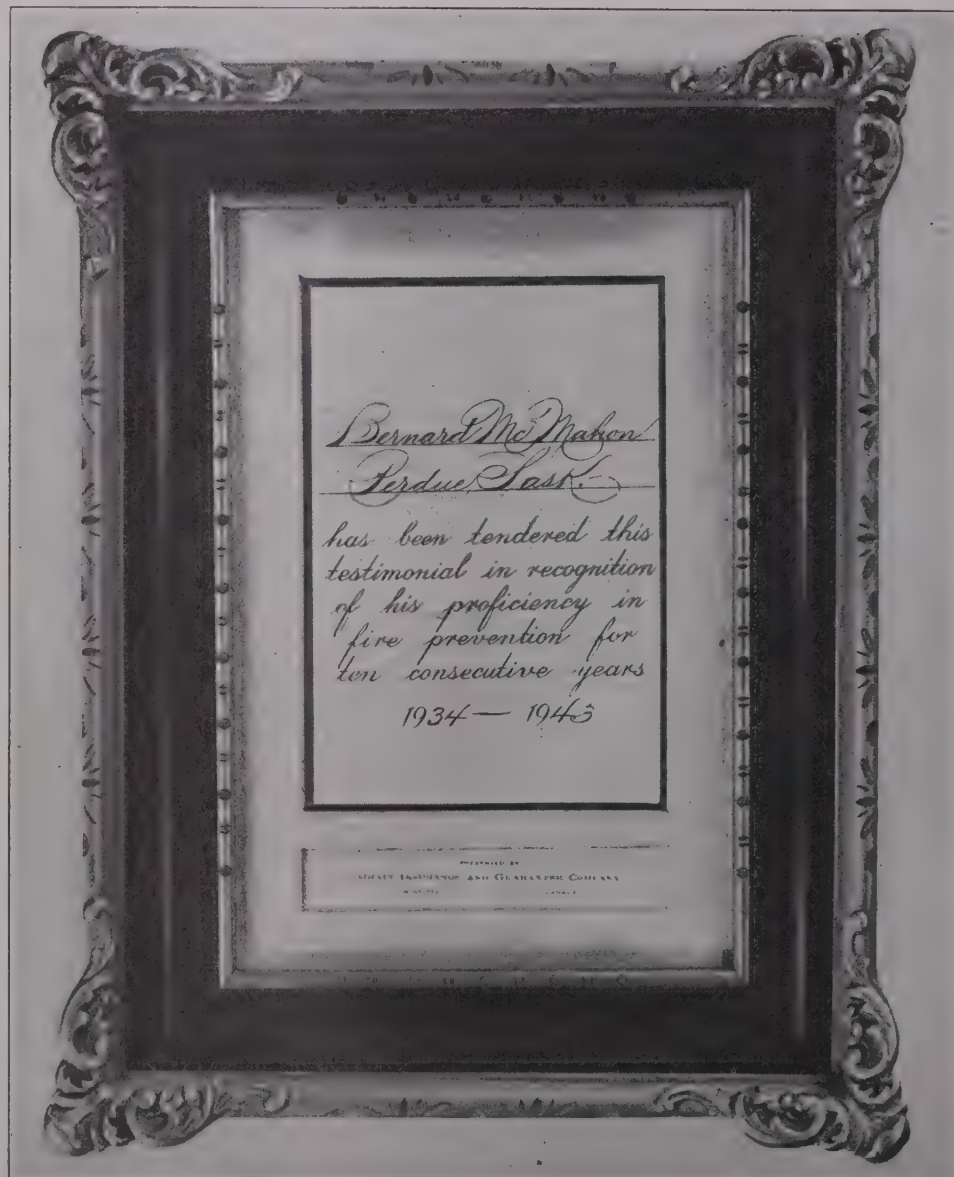 Bernard McMahon
Perdue, Sask.
has been tendered this
testimonial in recognition
of his proficiency in
fire prevention for
ten consecutive years
1934 — 1943
PRESENTED BY
GRAIN INSURANCE AND GUARANTEE COMPANY
CANADA